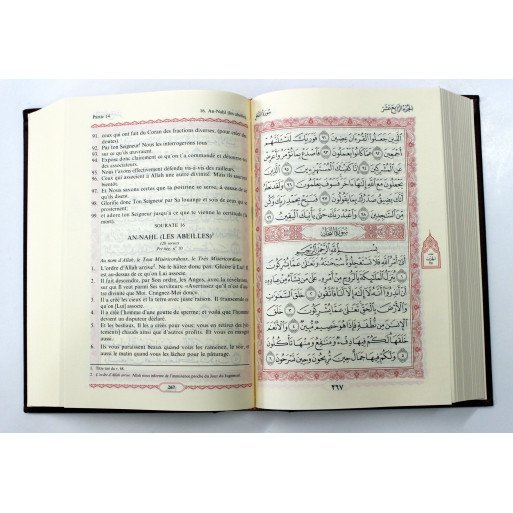 Partie 14
16. An-Nahl (les abeilles)
91. ceux qui ont fait du Coran des fractions diverses, (pour créer des
doutes).
92. Par ton Seigneur! Nous les interrogerons tous
93. sur ce qu'ils œuvraient.
94. Expose donc clairement ce qu'on t'a commandé et détourne-toi
des associateurs.
95. Nous t'avons effectivement défendu vis-à-vis des railleurs.
96. Ceux qui associent à Allah une autre divinité. Mais ils sauront
bientôt.
97. Et Nous savons certes que ta poitrine se serre, à cause de ce
qu'ils disent.
98. Glorifie donc Ton Seigneur par Sa louange et sois de ceux qui se
prosternent;
99. et adore ton Seigneur jusqu'à ce que te vienne la certitude (la
mort).
SOURATE 16
AN-NAHL (LES ABEILLES)¹
(128 versets)
Pré-hég. n° 70
Au nom d'Allah, le Tout Miséricordieux, le Très Miséricordieux.
1. L'ordre d'Allah arrive². Ne le hâtez donc pas. Gloire à Lui! Il
est au-dessus de ce qu'on [Lui] associe.
2. Il fait descendre, par Son ordre, les Anges, avec la révélation,
sur qui Il veut parmi Ses serviteurs: «Avertissez qu'il n'est d'autre
divinité que Moi. Craignez-Moi donc».
3. Il a créé les cieux et la terre avec juste raison. Il transcende ce
qu'on [Lui] associe.
4. Il a créé l'homme d'une goutte de sperme; et voilà que l'homme
devient un disputeur déclaré.
5. Et les bestiaux, Il les a créés pour vous; vous en retirez des [vê-
tements] chauds ainsi que d'autres profits. Et vous en mangez
aussi.
6. Ils vous paraissent beaux quand vous les ramenez, le soir, et
aussi le matin quand vous les lâchez pour le pâturage.
1. Titre tiré du v. 68.
2. L'ordre d'Allah arrive: Allah nous informe de l'imminence proche du Jour du Jugement.
267
سُورَةُ النَّحْلِ
الجُزْءُ الرَّابِعَ عَشَرَ
ٱلَّذِينَ جَعَلُوا۟ ٱلْقُرْءَانَ عِضِينَ ٩١ فَوَرَبِّكَ لَنَسْـَٔلَنَّهُمْ
أَجْمَعِينَ ٩٢ عَمَّا كَانُوا۟ يَعْمَلُونَ ٩٣ فَٱصْدَعْ بِمَا تُؤْمَرُ وَأَعْرِضْ
عَنِ ٱلْمُشْرِكِينَ ٩٤ إِنَّا كَفَيْنَـٰكَ ٱلْمُسْتَهْزِءِينَ ٩٥ ٱلَّذِينَ
يَجْعَلُونَ مَعَ ٱللَّهِ إِلَـٰهًا ءَاخَرَ فَسَوْفَ يَعْلَمُونَ ٩٦ وَلَقَدْ نَعْلَمُ
أَنَّكَ يَضِيقُ صَدْرُكَ بِمَا يَقُولُونَ ٩٧ فَسَبِّحْ بِحَمْدِ رَبِّكَ
وَكُن مِّنَ ٱلسَّـٰجِدِينَ ٩٨ وَٱعْبُدْ رَبَّكَ حَتَّىٰ يَأْتِيَكَ ٱلْيَقِينُ ٩٩
سُورَةُ النَّحْلِ
بِسْمِ ٱللَّهِ ٱلرَّحْمَـٰنِ ٱلرَّحِيمِ
أَتَىٰٓ أَمْرُ ٱللَّهِ فَلَا تَسْتَعْجِلُوهُ سُبْحَـٰنَهُۥ وَتَعَـٰلَىٰ عَمَّا يُشْرِكُونَ
١ يُنَزِّلُ ٱلْمَلَـٰٓئِكَةَ بِٱلرُّوحِ مِنْ أَمْرِهِۦ عَلَىٰ مَن يَشَآءُ مِنْ عِبَادِهِۦٓ
أَنْ أَنذِرُوٓا۟ أَنَّهُۥ لَآ إِلَـٰهَ إِلَّآ أَنَا۠ فَٱتَّقُونِ ٢ خَلَقَ ٱلسَّمَـٰوَٰتِ
وَٱلْأَرْضَ بِٱلْحَقِّ تَعَـٰلَىٰ عَمَّا يُشْرِكُونَ ٣ خَلَقَ
ٱلْإِنسَـٰنَ مِن نُّطْفَةٍ فَإِذَا هُوَ خَصِيمٌ مُّبِينٌ ٤ وَٱلْأَنْعَـٰمَ
خَلَقَهَا لَكُمْ فِيهَا دِفْءٌ وَمَنَـٰفِعُ وَمِنْهَا تَأْكُلُونَ
٥ وَلَكُمْ فِيهَا جَمَالٌ حِينَ تُرِيحُونَ وَحِينَ تَسْرَحُونَ ٦
٢٦٧